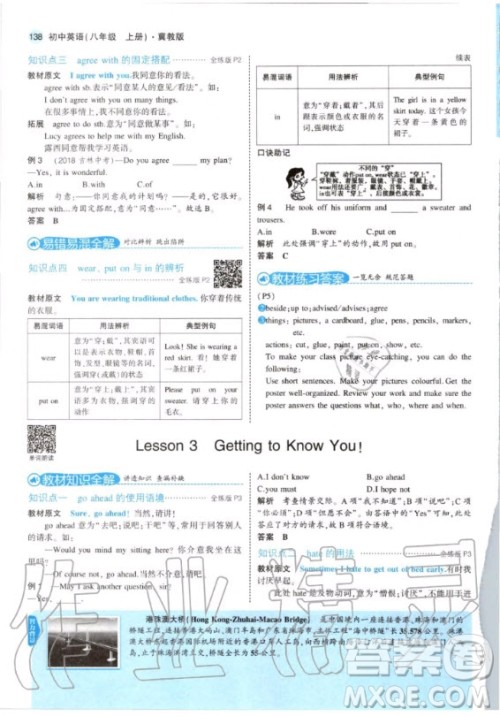 138 初中英语(八年级 上册)·冀教版
知识点三 agree with 的固定搭配 全练版 P2
教材原文 I agree with you.我同意你的看法。
agree with sb.表示“同意某人的意见/看法”。如:
I don't agree with you on many things.
在很多事情上,我不同意你的看法。
拓展 agree to do sth.意为“同意做某事”。如:
Lucy agrees to help me with my English.
露西同意帮我学习英语。
例 3 (2018 吉林中考)—Do you agree ______ my plan?
—Yes, it is wonderful.
A.in B.with C.at
解析 句意:—你同意我的计划吗?—是的,它很棒。
agree with 为固定搭配,意为“同意……”。故选 B。
答案 B
易错易混全解 对比辨析 跳出陷阱
知识点四 wear, put on 与 in 的辨析 全练版 P2
教材原文 You are wearing traditional clothes.你穿着传统
的衣服。
易混词语 用法辨析 典型例句
wear
意为“穿;戴”,其宾语可
以是衣物、鞋帽、首
饰、发型、眼镜等名词,
强调穿(或戴)的状态
Look! She is wearing a
red skirt. 看! 她穿着
一条红裙子。
put on
意为“穿上;戴上”,其宾
语为衣物,强调穿戴的
动作
Please put on your
sweater. 请穿上你的
毛衣。
续表
易混词语 用法辨析 典型例句
in
意为“穿着;戴着”,后面
跟表示颜色或衣服的名
词,强调状态
The girl is in a yellow
skirt today. 这个女孩今
天穿着一条黄裙子。
口诀助记
不同的“穿”
例 4 He took off his uniform and ______ a sweater and
trousers.
A.in B.wear C.put on
解析 此处强调“穿上”的动作,故用 put on。
答案 C
教材练习答案 一览无余 规范答题
(P5)
❷beside;up to;advised/advises;agree
❸things: pictures, a cardboard, glue, pens, pencils, markers,
etc.
actions: cut, glue, paint, put on, show, etc.
To make your class picture eye-catching, you can do the
following:
Use short sentences. Make pictures colourful. Get the
poster well-organized. Review your work and make sure the
poster answers the questions what, who, why, when and
where.
单词朗读
Lesson 3 Getting to Know You!
教材知识全解 讲透知识 查漏补缺
知识点一 go ahead 的使用语境 全练版 P3
教材原文 Sure, go ahead! 当然,说吧!
go ahead 意为“去吧;说吧;干吧”等,常用于回答别人
的请求。如:
—Would you mind my sitting here? 你介意我坐在这里
吗?
—Of course not, go ahead. 当然不介意,请吧。
例 1 —May I ask another question, sir?
A.I don't know B.go ahead
C.you must D.I hope not
解析 考查情景交际。A 项“我不知道”;B 项“说吧”;C
项“你必须”;D 项“我希望不会”。由答语中的“Yes”可
知,B 项符合语境。
答案 B
知识点二 hate 的用法 全练版 P3
教材原文 Sometimes I hate to get out of bed early.有时我
讨厌早起。
此处 hate 是及物动词,意为“憎恨;讨厌”,不用于进行
港珠澳大桥(Hong Kong-Zhuhai-Macao Bridge)
作业精灵
答案圈
MXQE.COM